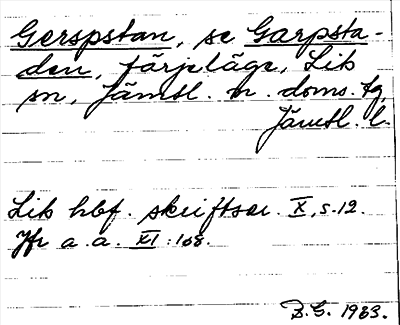 Gerspstan, se Garpsta-
den, färjeläge, Lits
sn, Jämtl. n. doms. fg,
Jämtl. l.
Lits hbf. skriftser. X, s. 12.
Jfr a. a. XI : 108.
B.G. 1983.